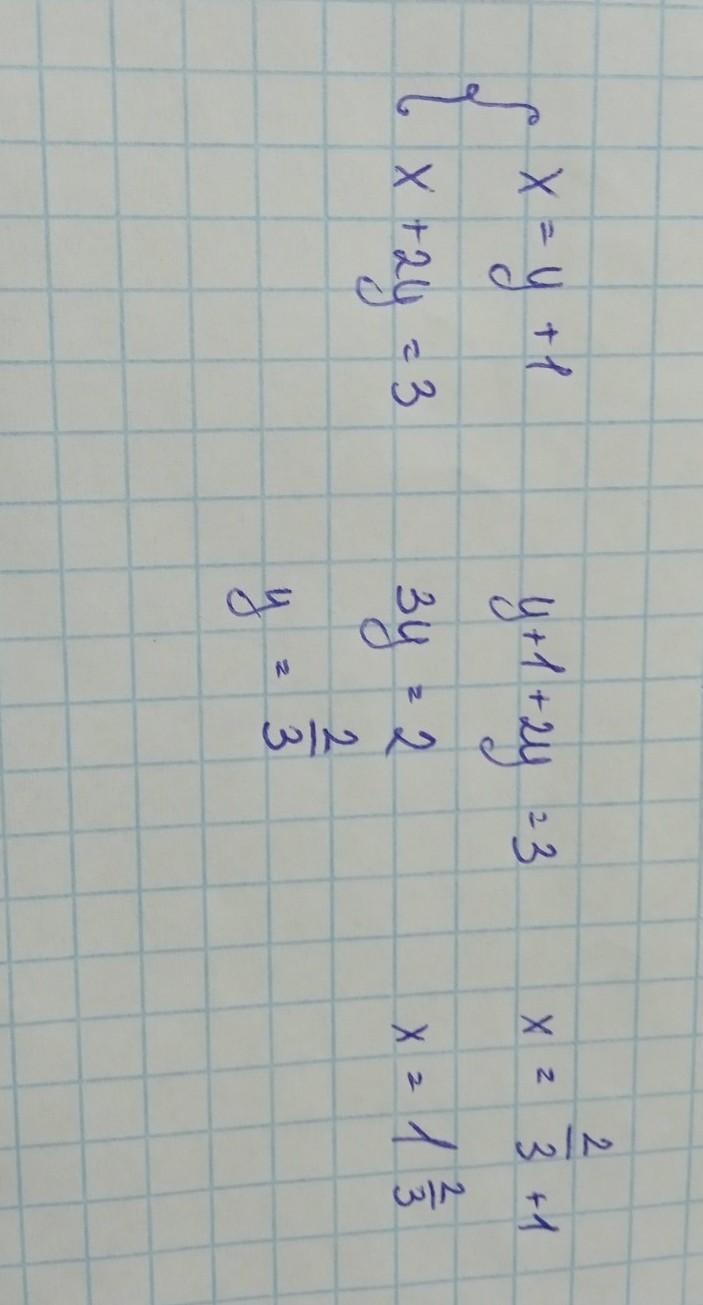 { x = y + 1
x + 2y = 3
y + 1 + 2y = 3
3y = 2
y = 2/3
x = 2/3 + 1
x = 1 2/3